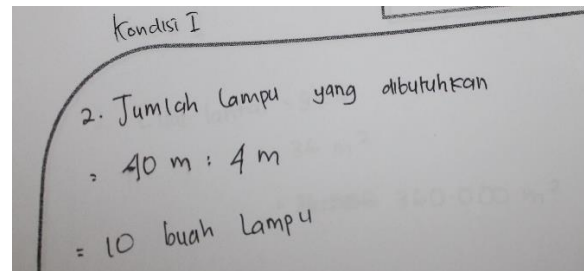 Kondisi I
2. Jumlah lampu yang dibutuhkan
= 40 m : 4 m
= 10 buah lampu